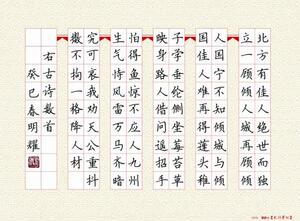 北方有佳人绝世而独
立一顾倾人城再顾倾
人国宁不知倾城与倾
国佳人难再得蓬头稚
子学垂纶侧坐莓苔草
映身路人借问遥招手
怕得鱼惊不应人九州
生气恃风雷万马齐喑
究可哀我劝天公重抖
擞不拘一格降人材
右古诗数首
癸巳春明耀